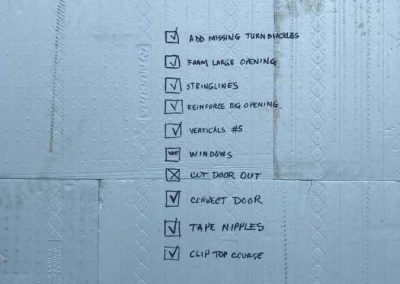 ADD MISSING TURNBUCKLES
FOAM LARGE OPENING
STRINGLINES
REINFORCE BIG OPENING
VERTICALS #5
WINDOWS
CUT DOOR OUT
CORRECT DOOR
TAPE NIPPLES
CLIP TOP COURSE